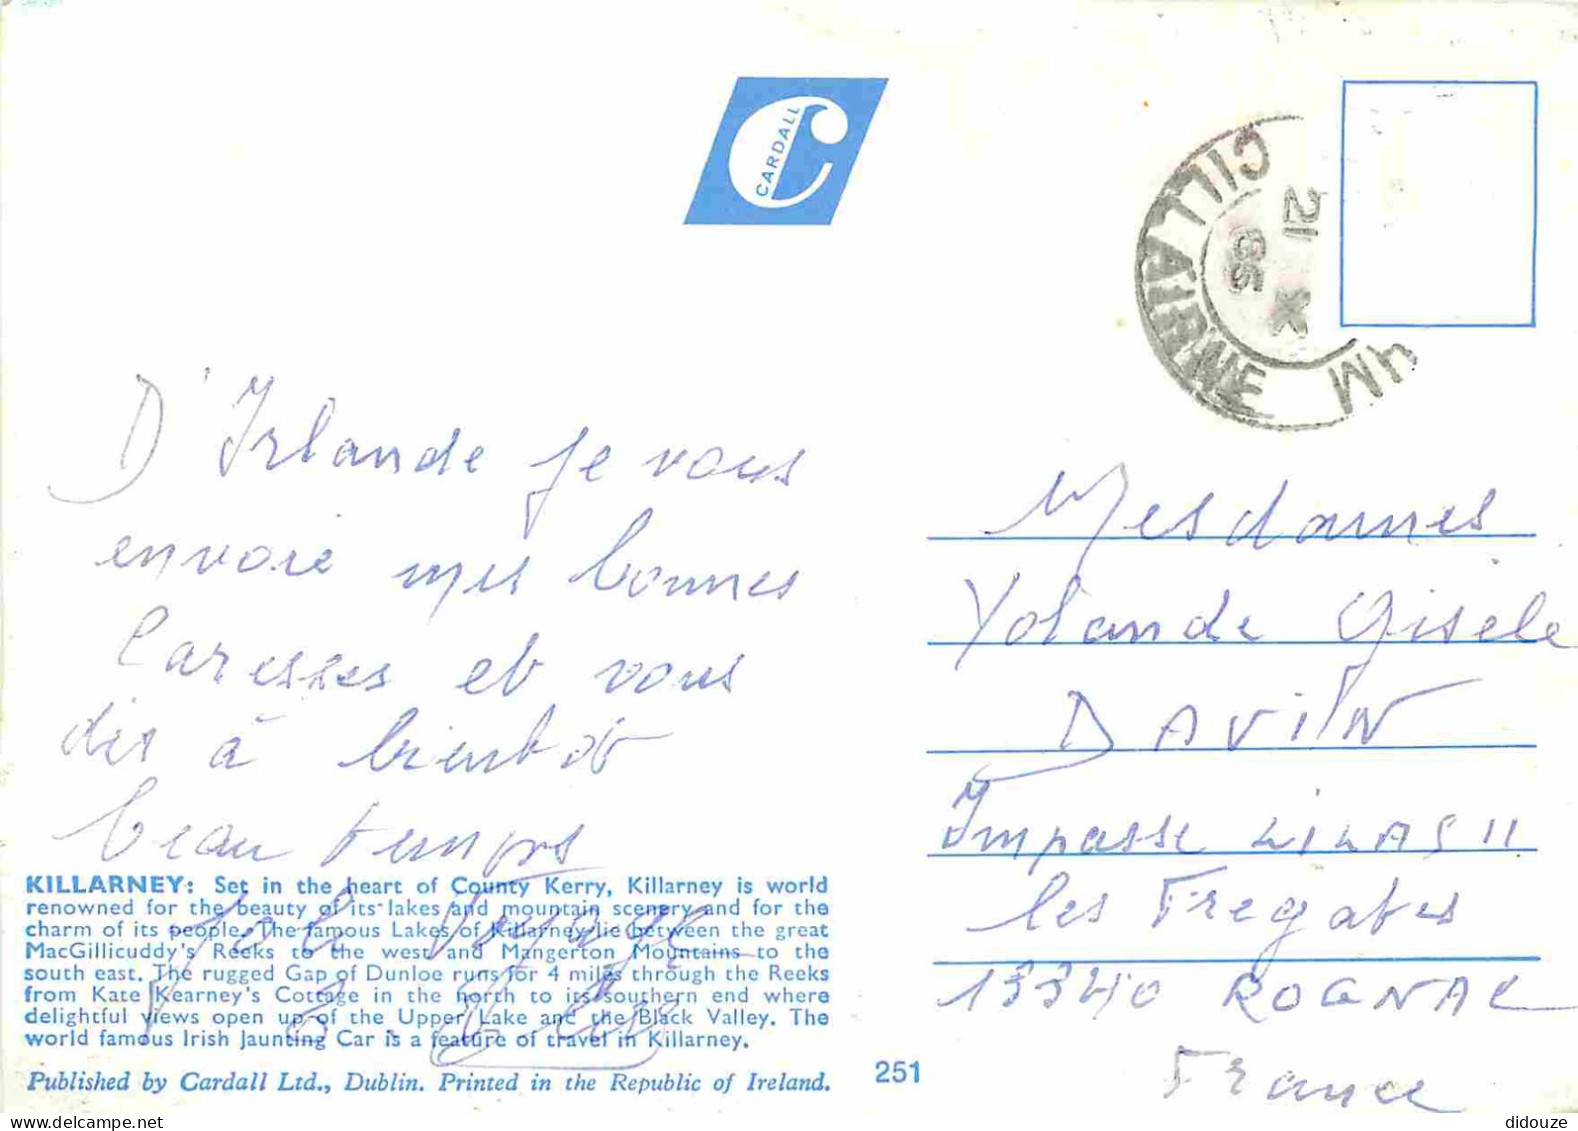 CARDALL
CILL AIRNE
21 X 86
D'Irlande je vous
envoie mes bonnes
Caresses et vous
dis à bientôt
beau temps
Joli Voyage
KILLARNEY: Set in the heart of County Kerry, Killarney is world
renowned for the beauty of its lakes and mountain scenery and for the
charm of its people. The famous Lakes of Killarney lie between the great
MacGillicuddy's Reeks to the west and Mangerton Mountains to the
south east. The rugged Gap of Dunloe runs for 4 miles through the Reeks
from Kate Kearney's Cottage in the north to its southern end where
delightful views open up of the Upper Lake and the Black Valley. The
world famous Irish Jaunting Car is a feature of travel in Killarney.
Published by Cardall Ltd., Dublin. Printed in the Republic of Ireland.
251
Mesdames
Yolande Gisele
DAVIN
Impasse LILAS 11
les Fregates
13340 ROGNAC
France
didouze